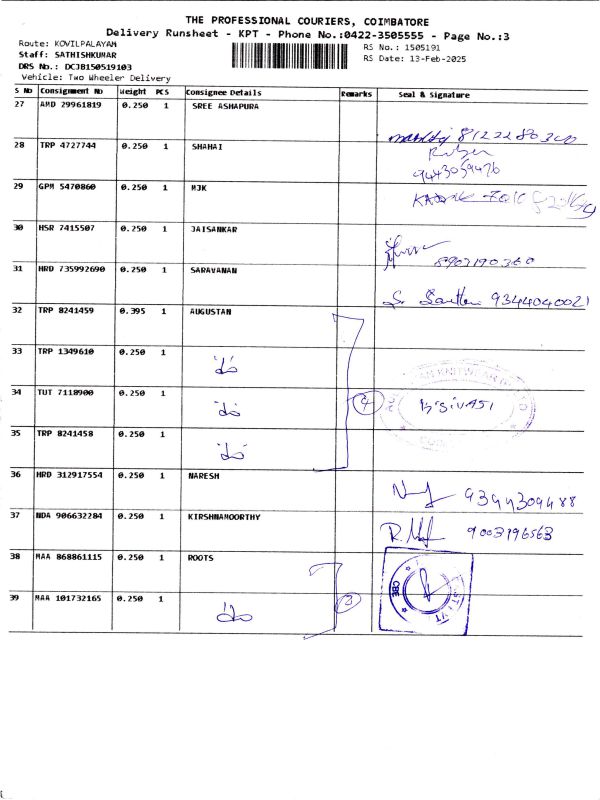 THE PROFESSIONAL COURIERS, COIMBATORE
Delivery Runsheet - KPT - Phone No.:0422-3505555 - Page No.:3
Route: KOVILPALAYAM
RS No.: 1505191
Staff: SATHISHKUMAR
RS Date: 13-Feb-2025
DRS No.: DCJB150519103
Vehicle: Two Wheeler Delivery
S No Consignment No Weight PCS Consignee Details Remarks Seal & Signature
27 AMD 29961819 0.250 1 SREE ASHAPURA
8122280300
28 TRP 4727744 0.250 1 SHAHAI
9443059476
29 GPM 5470860 0.250 1 MJK
30 HSR 7415507 0.250 1 JAISANKAR
8903190360
31 HRD 735992690 0.250 1 SARAVANAN
9344040021
32 TRP 8241459 0.395 1 AUGUSTAN
33 TRP 1349610 0.250 1
34 TUT 7118900 0.250 1 4 B'SIVASI
35 TRP 8241458 0.250 1
36 HRD 312917554 0.250 1 NARESH
9344309488
37 NDA 906632284 0.250 1 KIRSHNAMOORTHY
9003196563
38 MAA 868861115 0.250 1 ROOTS
CBE
39 MAA 101732165 0.250 1